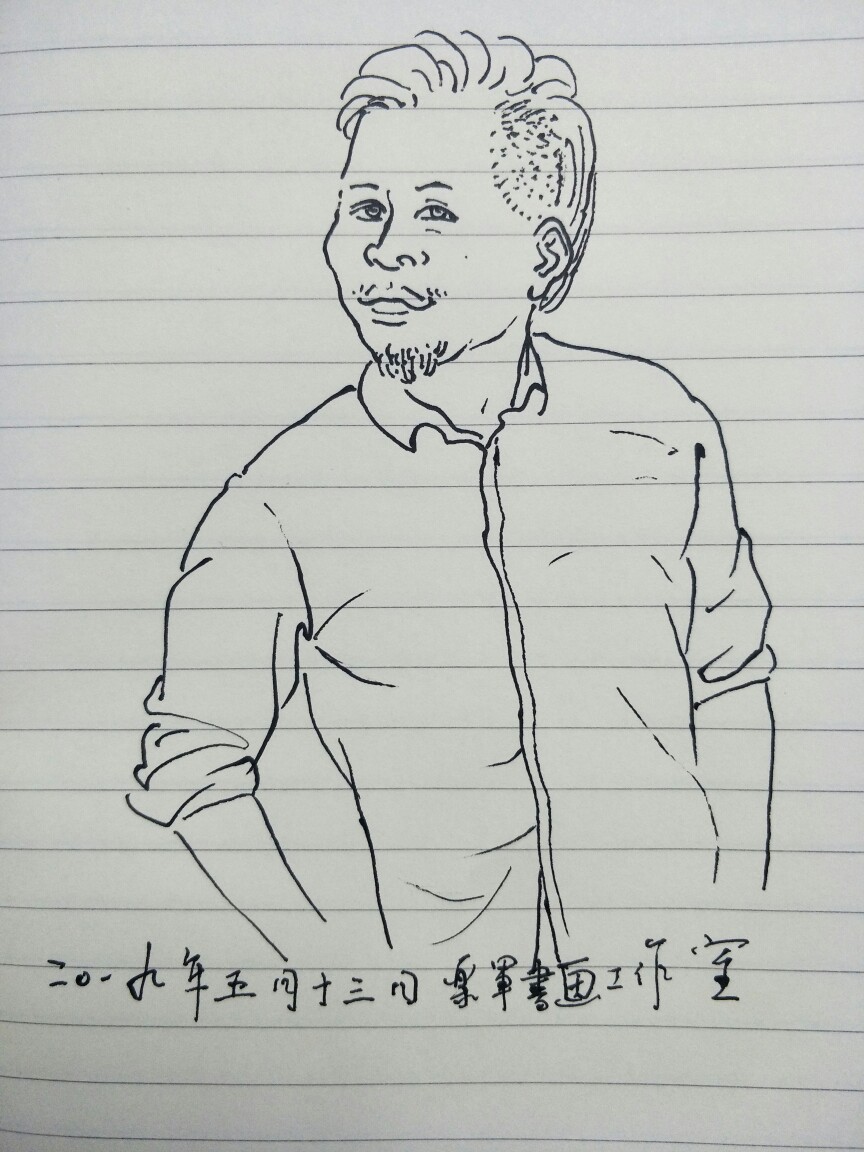 二〇一九年五月十三日 楽軍書画工作室